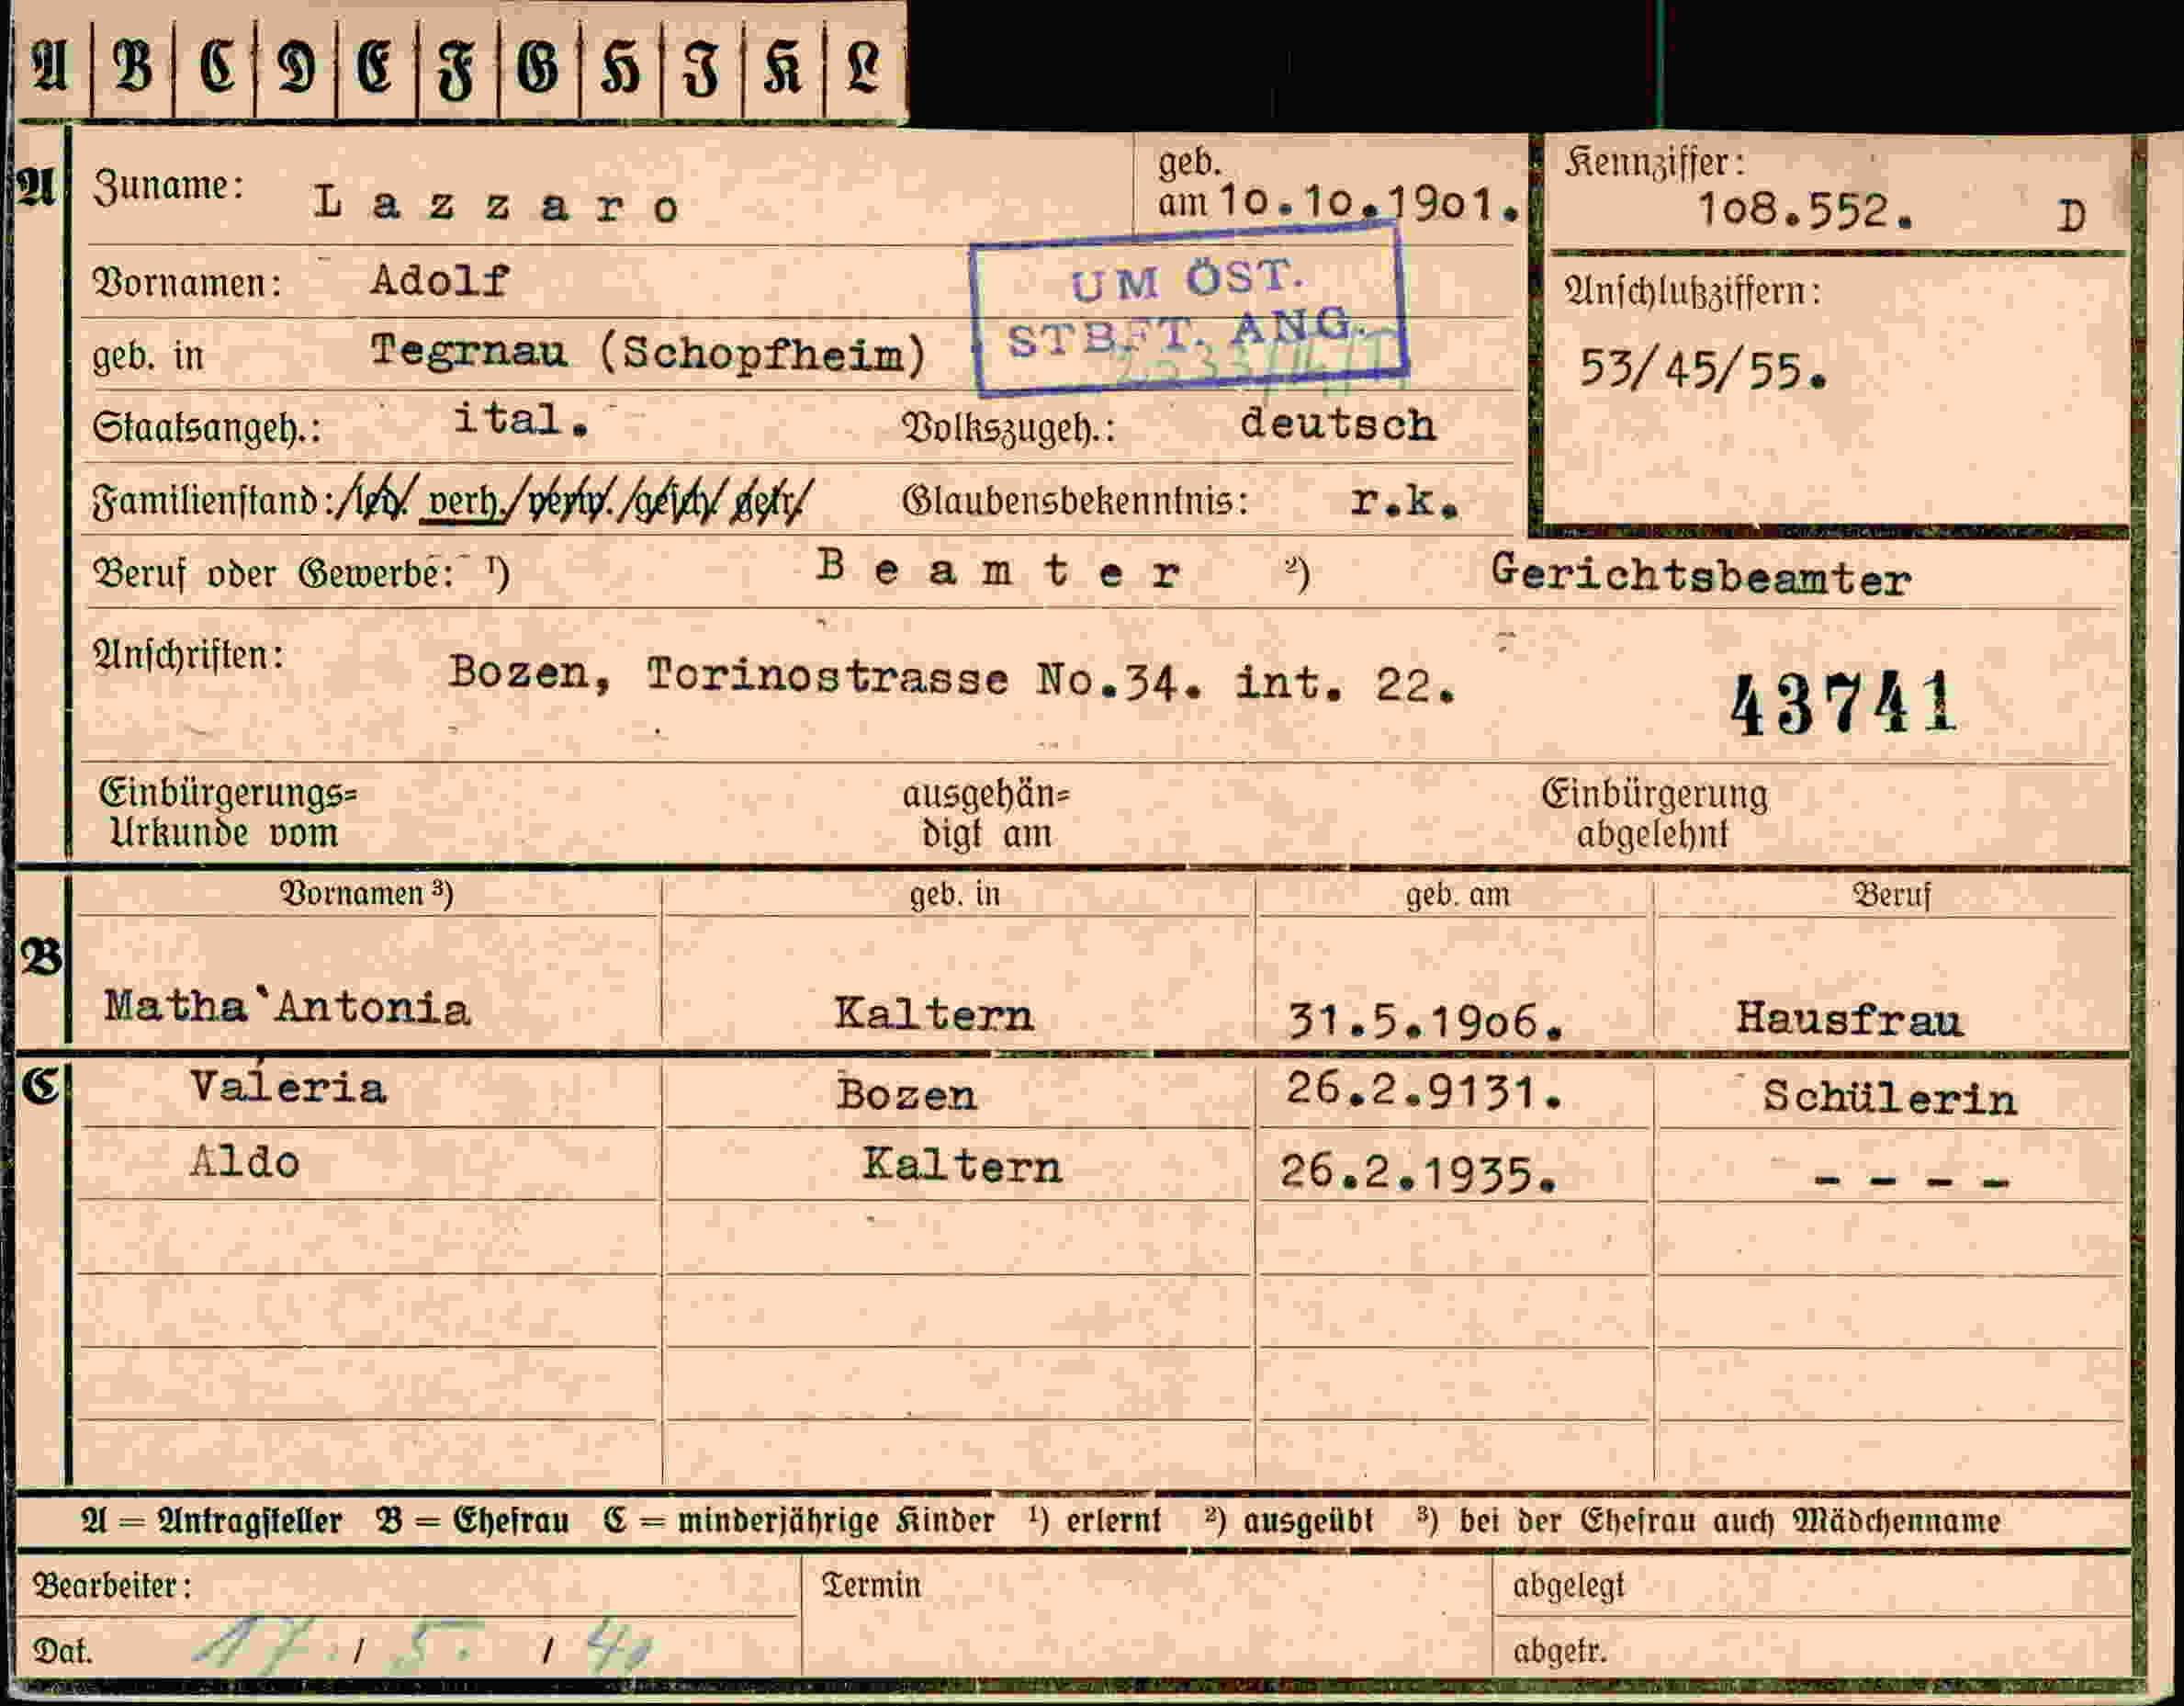 A B C D E F G H I K L
A Zuname: Lazzaro geb. am 10.10.1901. Kennziffer: 108.552. D
Vornamen: Adolf
UM ÖST. STBFT. ANG.
Anschlußziffern:
geb. in Tegrnau (Schopfheim)
53/45/55.
Staatsangeh.: ital. Volkszugeh.: deutsch
Familienstand: /led/ verh./verw./gesch/ getr/ Glaubensbekenntnis: r.k.
Beruf oder Gewerbe: ¹) Beamter ²) Gerichtsbeamter
Anschriften: Bozen, Torinostrasse No.34. int. 22. 43741
Einbürgerungs= ausgehän= Einbürgerung
Urkunde vom digt am abgelehnt
Vornamen ³) geb. in geb. am Beruf
B Matha Antonia Kaltern 31.5.1906. Hausfrau
C Valeria Bozen 26.2.9131. Schülerin
Aldo Kaltern 26.2.1935. - - - -
A = Antragsteller B = Ehefrau C = minderjährige Kinder ¹) erlernt ²) ausgeübt ³) bei der Ehefrau auch Mädchenname
Bearbeiter: Termin abgelegt
Dat. 17. / 5. / abgetr.